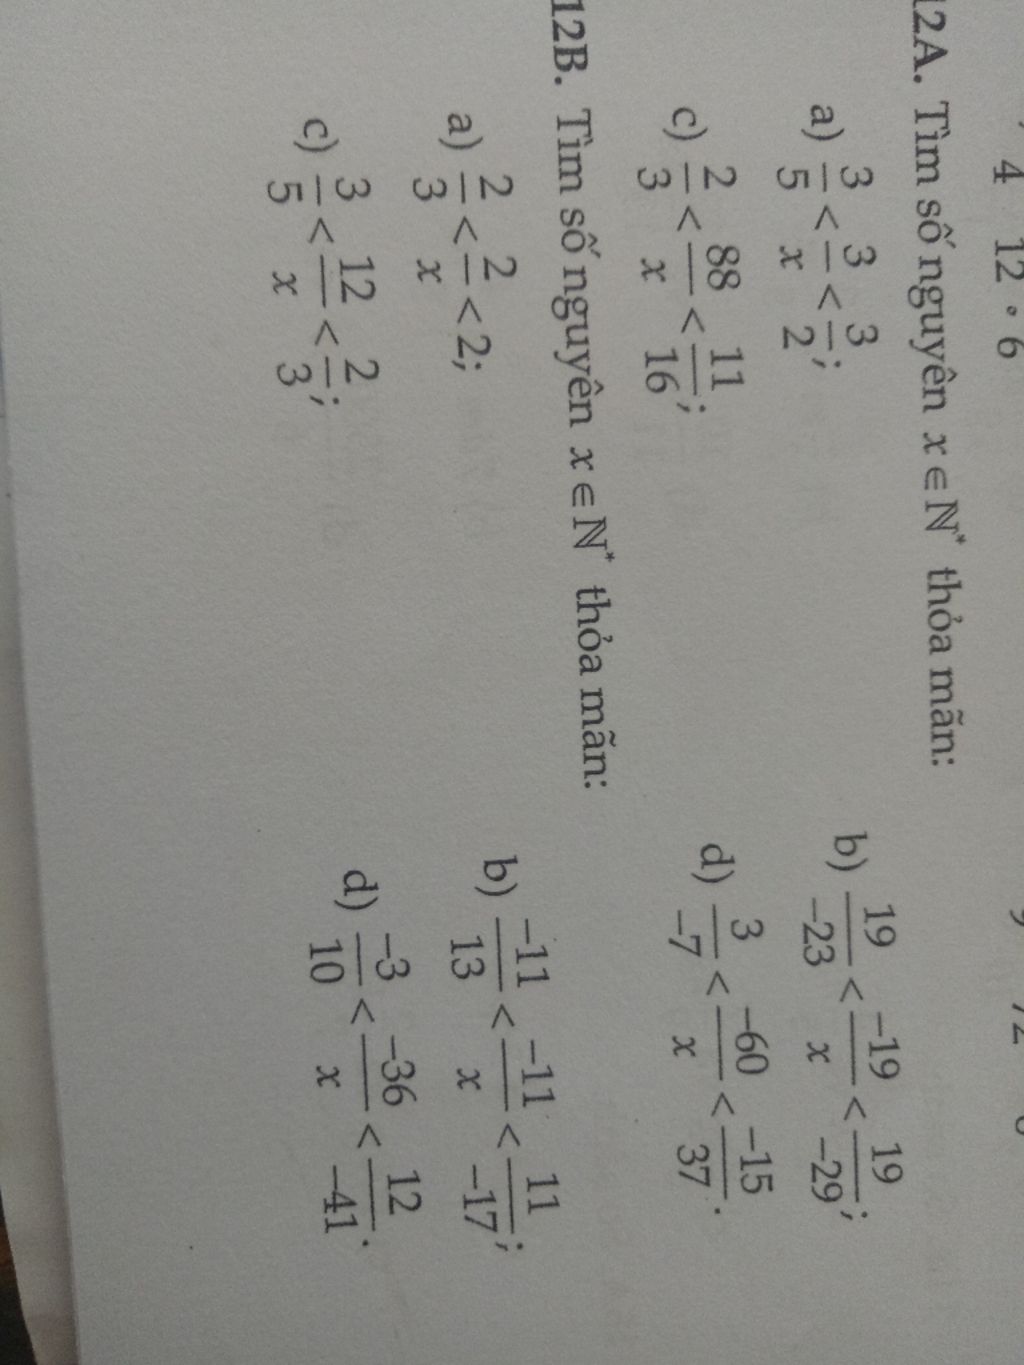 4 12 6
12A. Tìm số nguyên x ∈ ℕ* thỏa mãn:
a) 3/5 < 3/x < 3/2; b) 19/-23 < -19/x < 19/-29;
c) 2/3 < 88/x < 11/16; d) 3/-7 < -60/x < -15/37.
12B. Tìm số nguyên x ∈ ℕ* thỏa mãn:
a) 2/3 < 2/x < 2; b) -11/13 < -11/x < 11/-17;
c) 3/5 < 12/x < 2/3; d) -3/10 < -36/x < 12/-41.